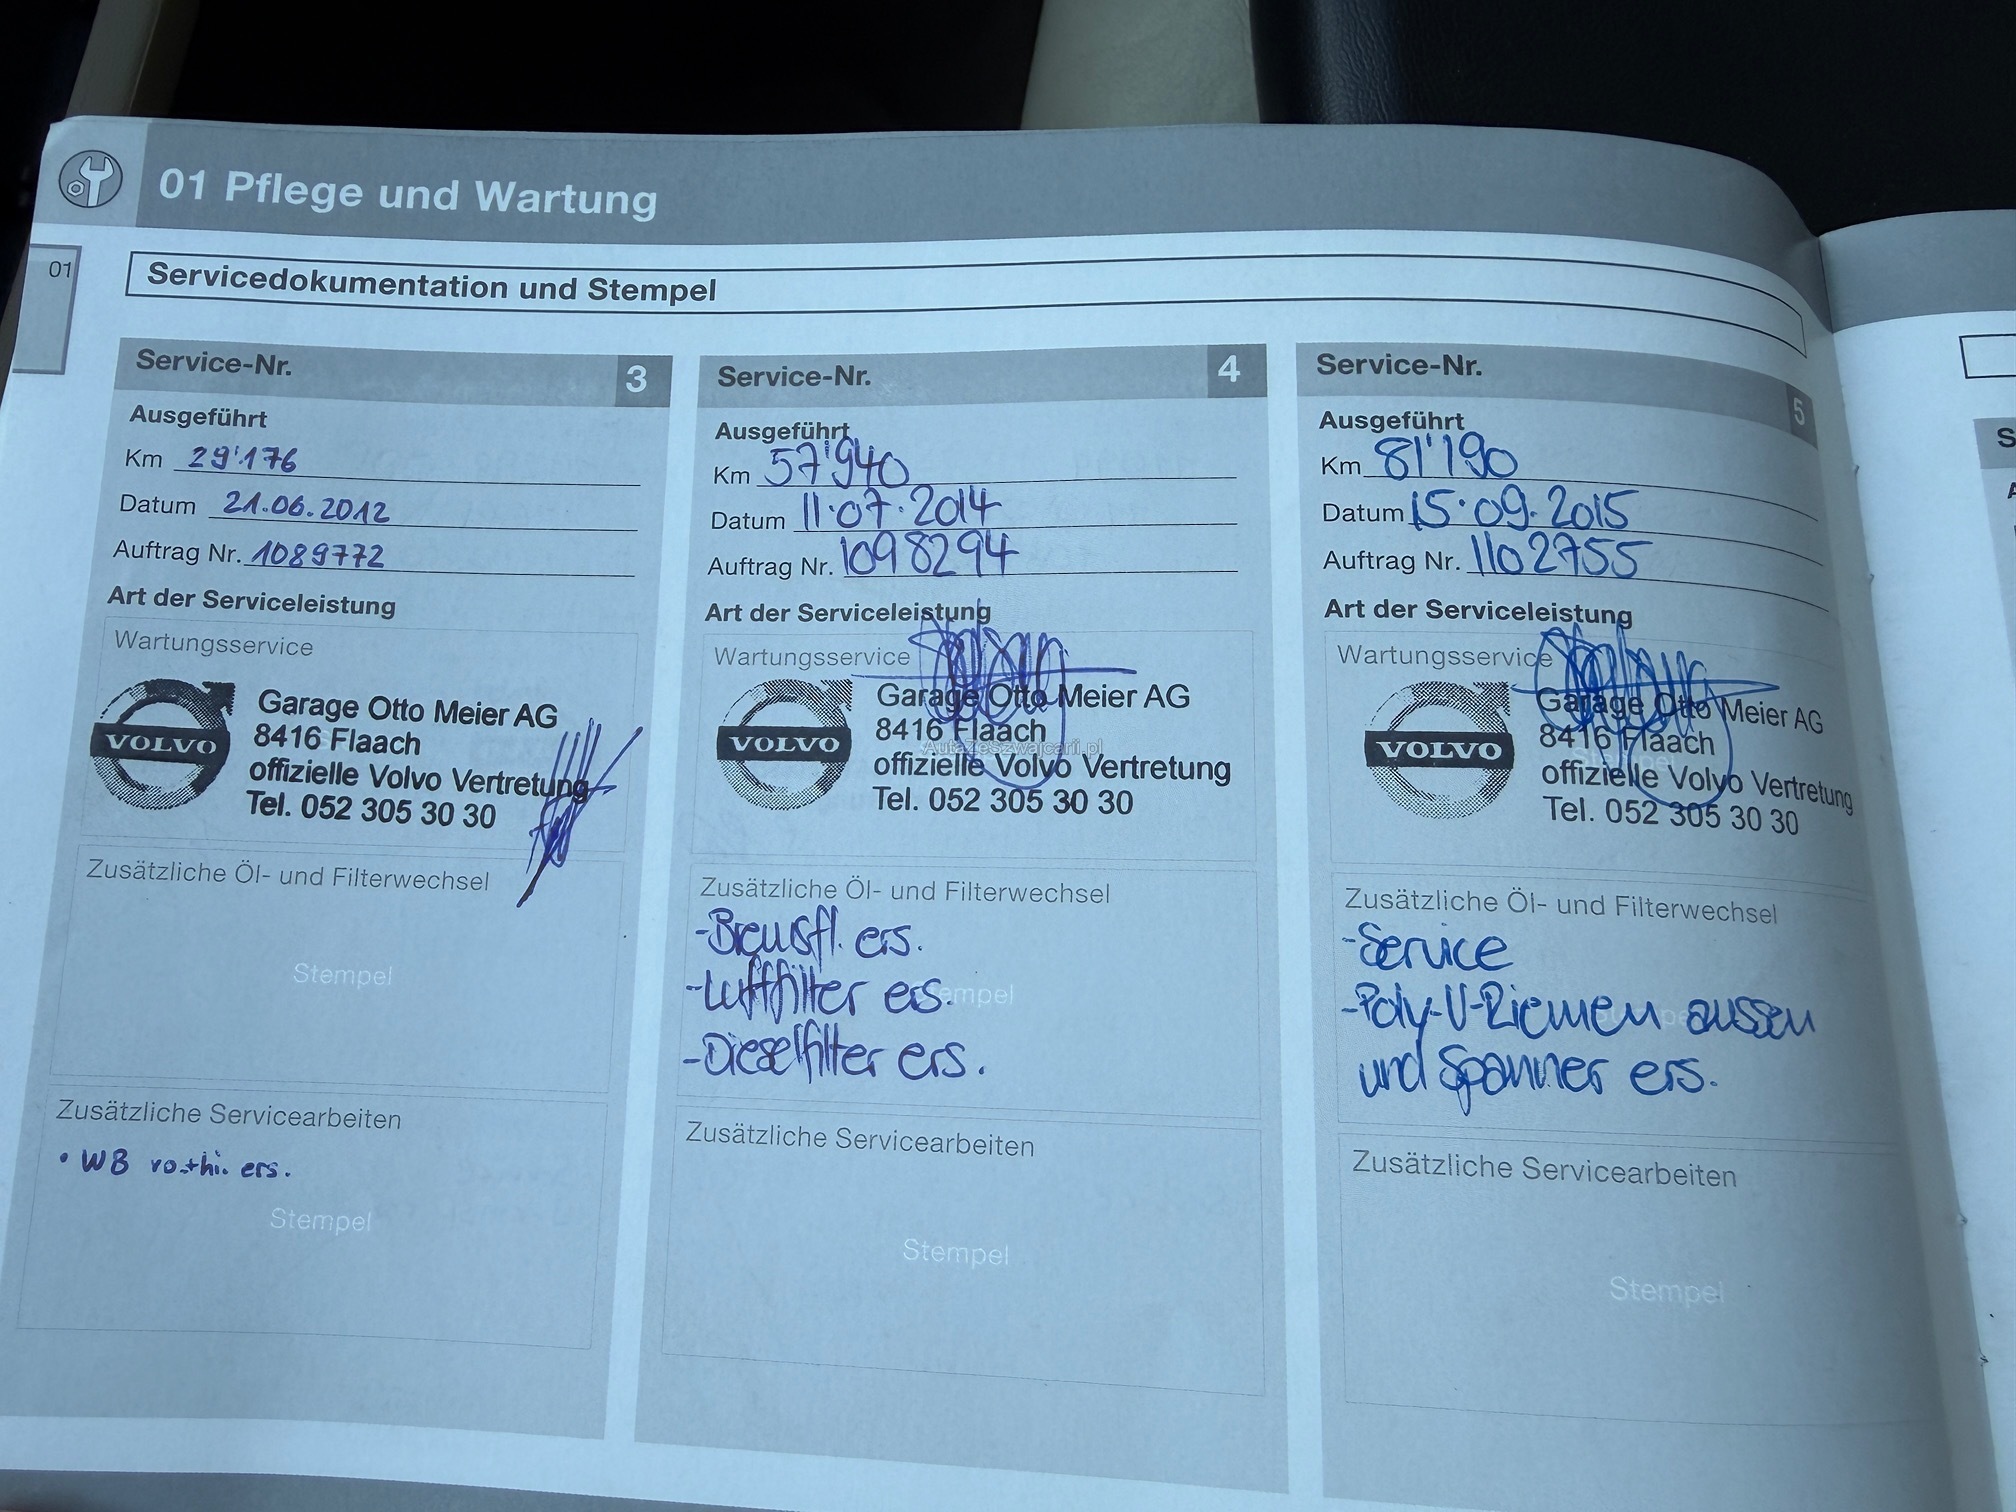 01 Pflege und Wartung
01
Servicedokumentation und Stempel
Service-Nr. 3
Ausgeführt
Km 29'176
Datum 21.06.2012
Auftrag Nr. 1089772
Art der Serviceleistung
Wartungsservice
VOLVO
Garage Otto Meier AG
8416 Flaach
offizielle Volvo Vertretung
Tel. 052 305 30 30
Zusätzliche Öl- und Filterwechsel
Stempel
Zusätzliche Servicearbeiten
• WB vo.+hi. ers.
Stempel
Service-Nr. 4
Ausgeführt
Km 57'940
Datum 11.07.2014
Auftrag Nr. 1098294
Art der Serviceleistung
Wartungsservice
VOLVO
Garage Otto Meier AG
8416 Flaach
AutazeSzwajcarii.pl
offizielle Volvo Vertretung
Tel. 052 305 30 30
Zusätzliche Öl- und Filterwechsel
-Bremsfl. ers.
-Luftfilter ers.
Stempel
-Dieselfilter ers.
Zusätzliche Servicearbeiten
Stempel
Service-Nr. 5
Ausgeführt
Km 81'190
Datum 15.09.2015
Auftrag Nr. 1102755
Art der Serviceleistung
Wartungsservice
VOLVO
Garage Otto Meier AG
8416 Flaach
Stempel
offizielle Volvo Vertretung
Tel. 052 305 30 30
Zusätzliche Öl- und Filterwechsel
-Service
-Poly-V-Riemen aussen
Stempel
und Spanner ers.
Zusätzliche Servicearbeiten
Stempel